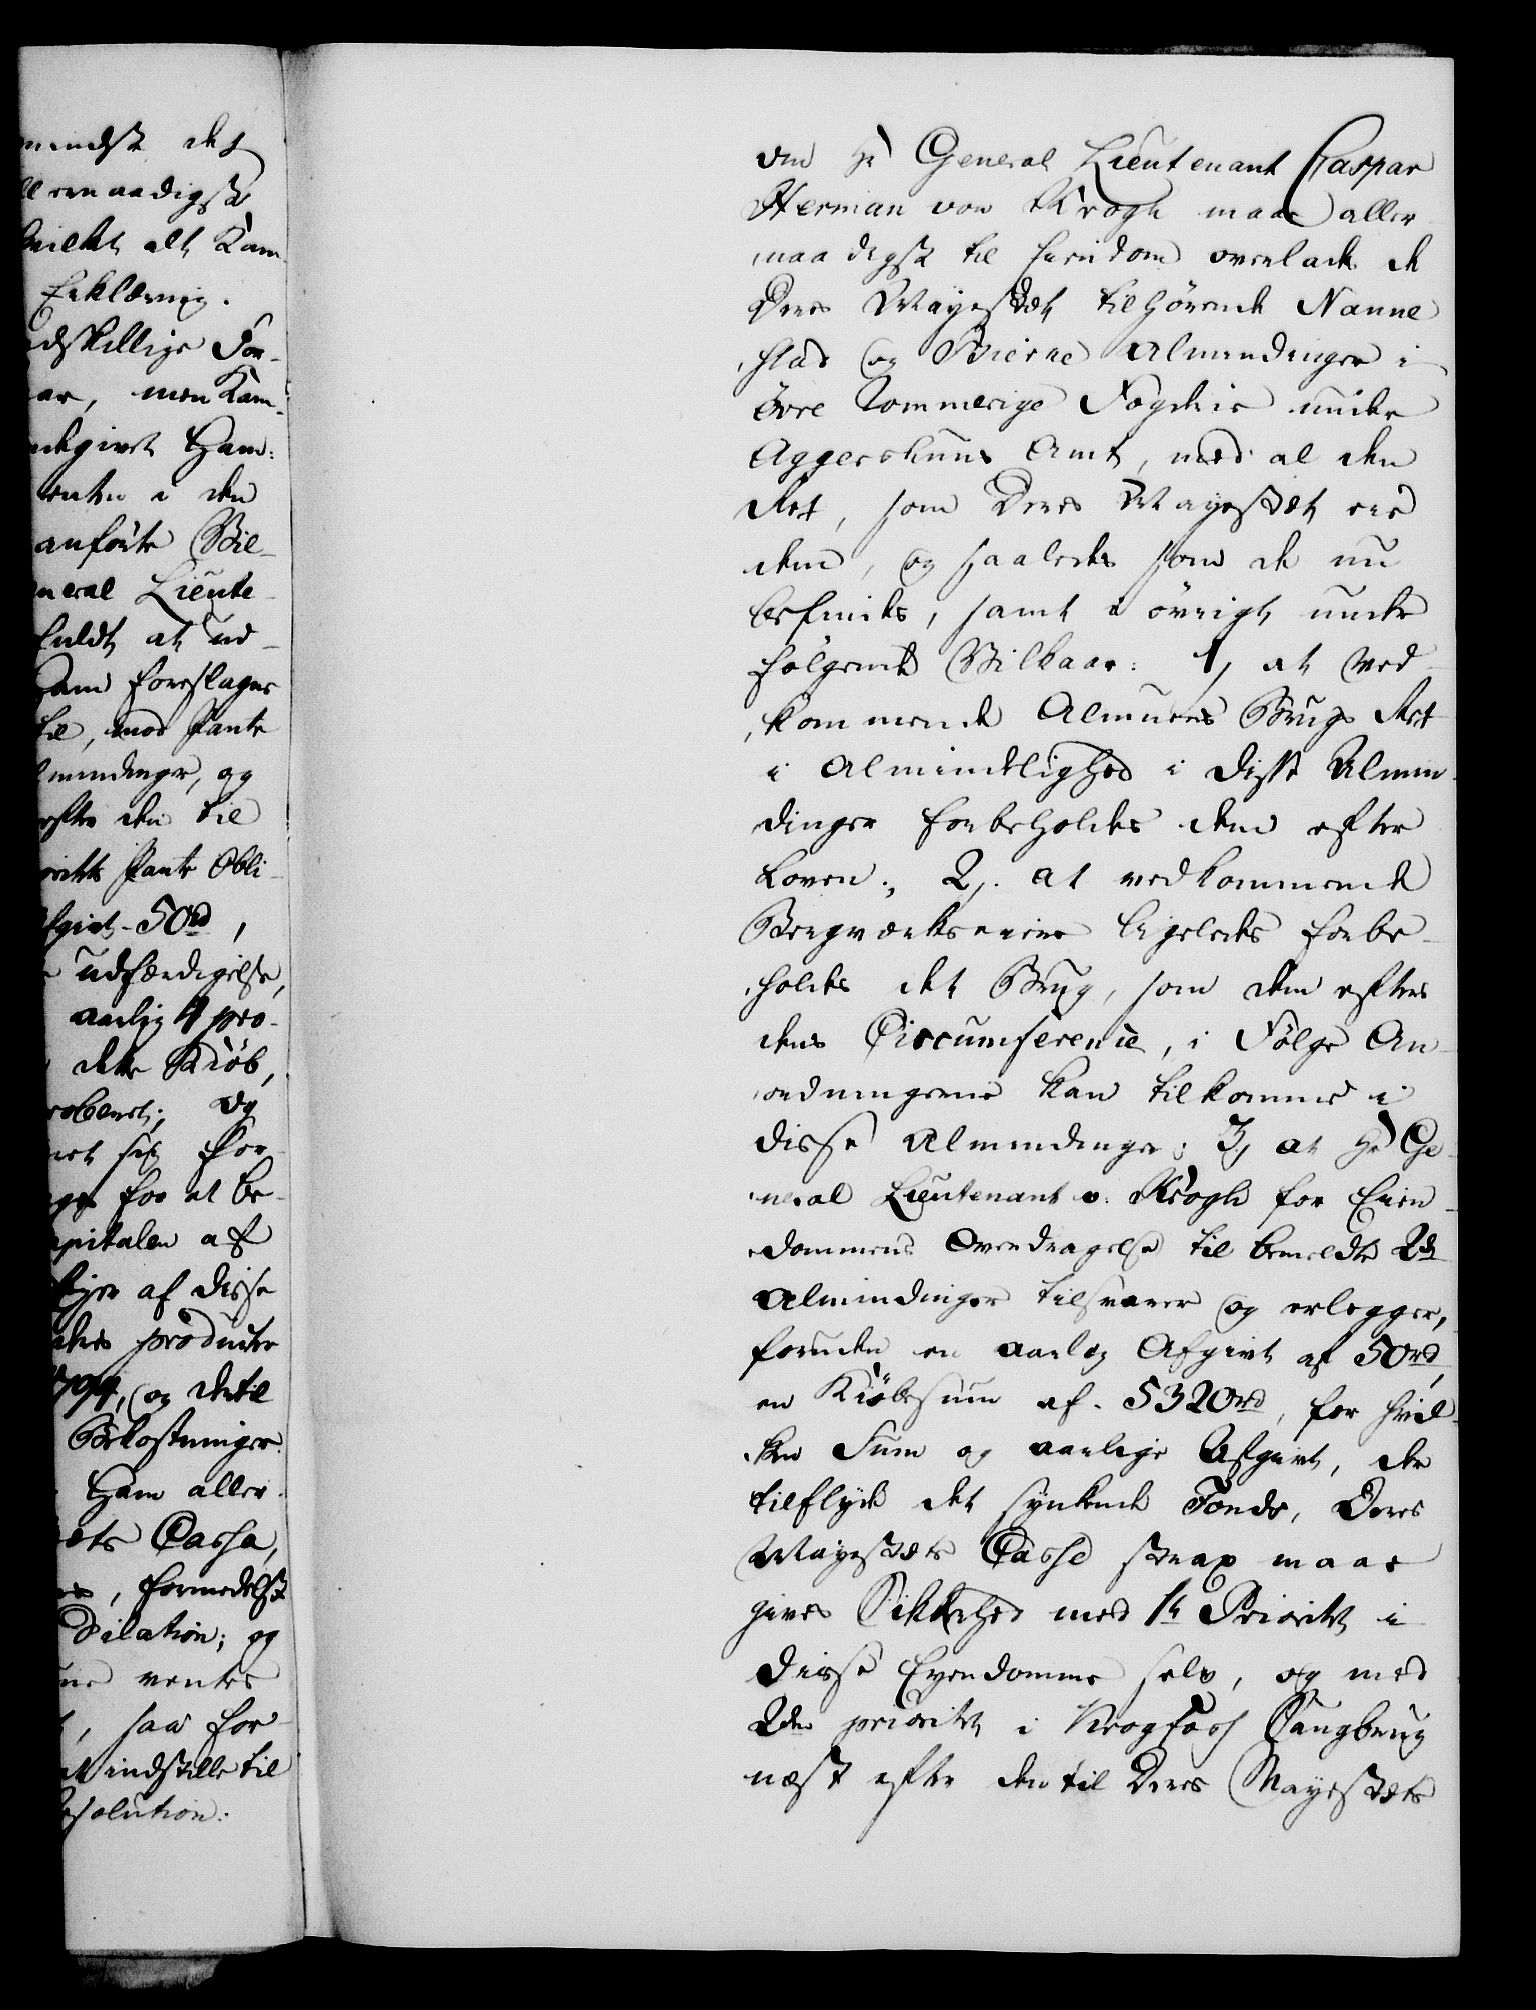 mindst det
allernaadigst
hvilket alt Kam
Erklæring.
adskillige For-
ar, men Kam-
tilkgivet Ham:
renten i den
anførte Vil-
neral Lieute-
fuldt at ud-
Ham foreslagne
til, mod Pante
lmindinger, og
efter den til
Pante Obli-
fgivt 50 rd,
udfærdigelse,
aarlig 4 pro-
dette Kiøb,
og
sig for-
for at be-
apitalen af
af disse
producter
1794, og dertil
Bekostninger.
Ham aller-
ets Cassa,
formedelst
Dilation; og
ventes
, saa for-
at indstille til
Resolution:
om Hr General Lieutenant Caspar
Herman von Krogh maae aller-
naadigst til Eiendom overlades de
Deres Mayestæt tilhørende Nanne-
stad og Bierne Almindinger i
øvre Rommerige Fogderie under
Aggershuus Amt, med al den
Ret, som Deres Mayestæt eier
dem, og saaledes som de nu
befindes, samt i øvrigt under
følgende Vilkaar: 1, at ved-
kommende Almues Brugs Ret
i Almindelighed i disse Almin-
dinger forbeholdes dem efter
Loven; 2, at vedkommende
Bergværkseiere ligeledes forbe-
holdes det Brug, som dem efter
dens Circumference, i Følge An-
ordningerne kan tilkomme i
disse Almindinger; 3, at Hr Ge-
neral Lieutenant v. Krogh for Eien-
dommens Overdragelse til bemeldte 2de
Almindinger tilsvarer og erlegger,
foruden en aarlig Afgivt af 50 rd,
en Kiøbesum af 5320 rd, for hvil-
ken Sum og aarlige Afgivt, der
tilflyde det synkende Fonds, Deres
Mayestæts Casse strax maae
gives Sikkerhed med 1te Prioritet i
disse Eyendomme selv, og med
2den prioritet i Krogfoss Saugbrug
næst efter den til Deres Mayestæts